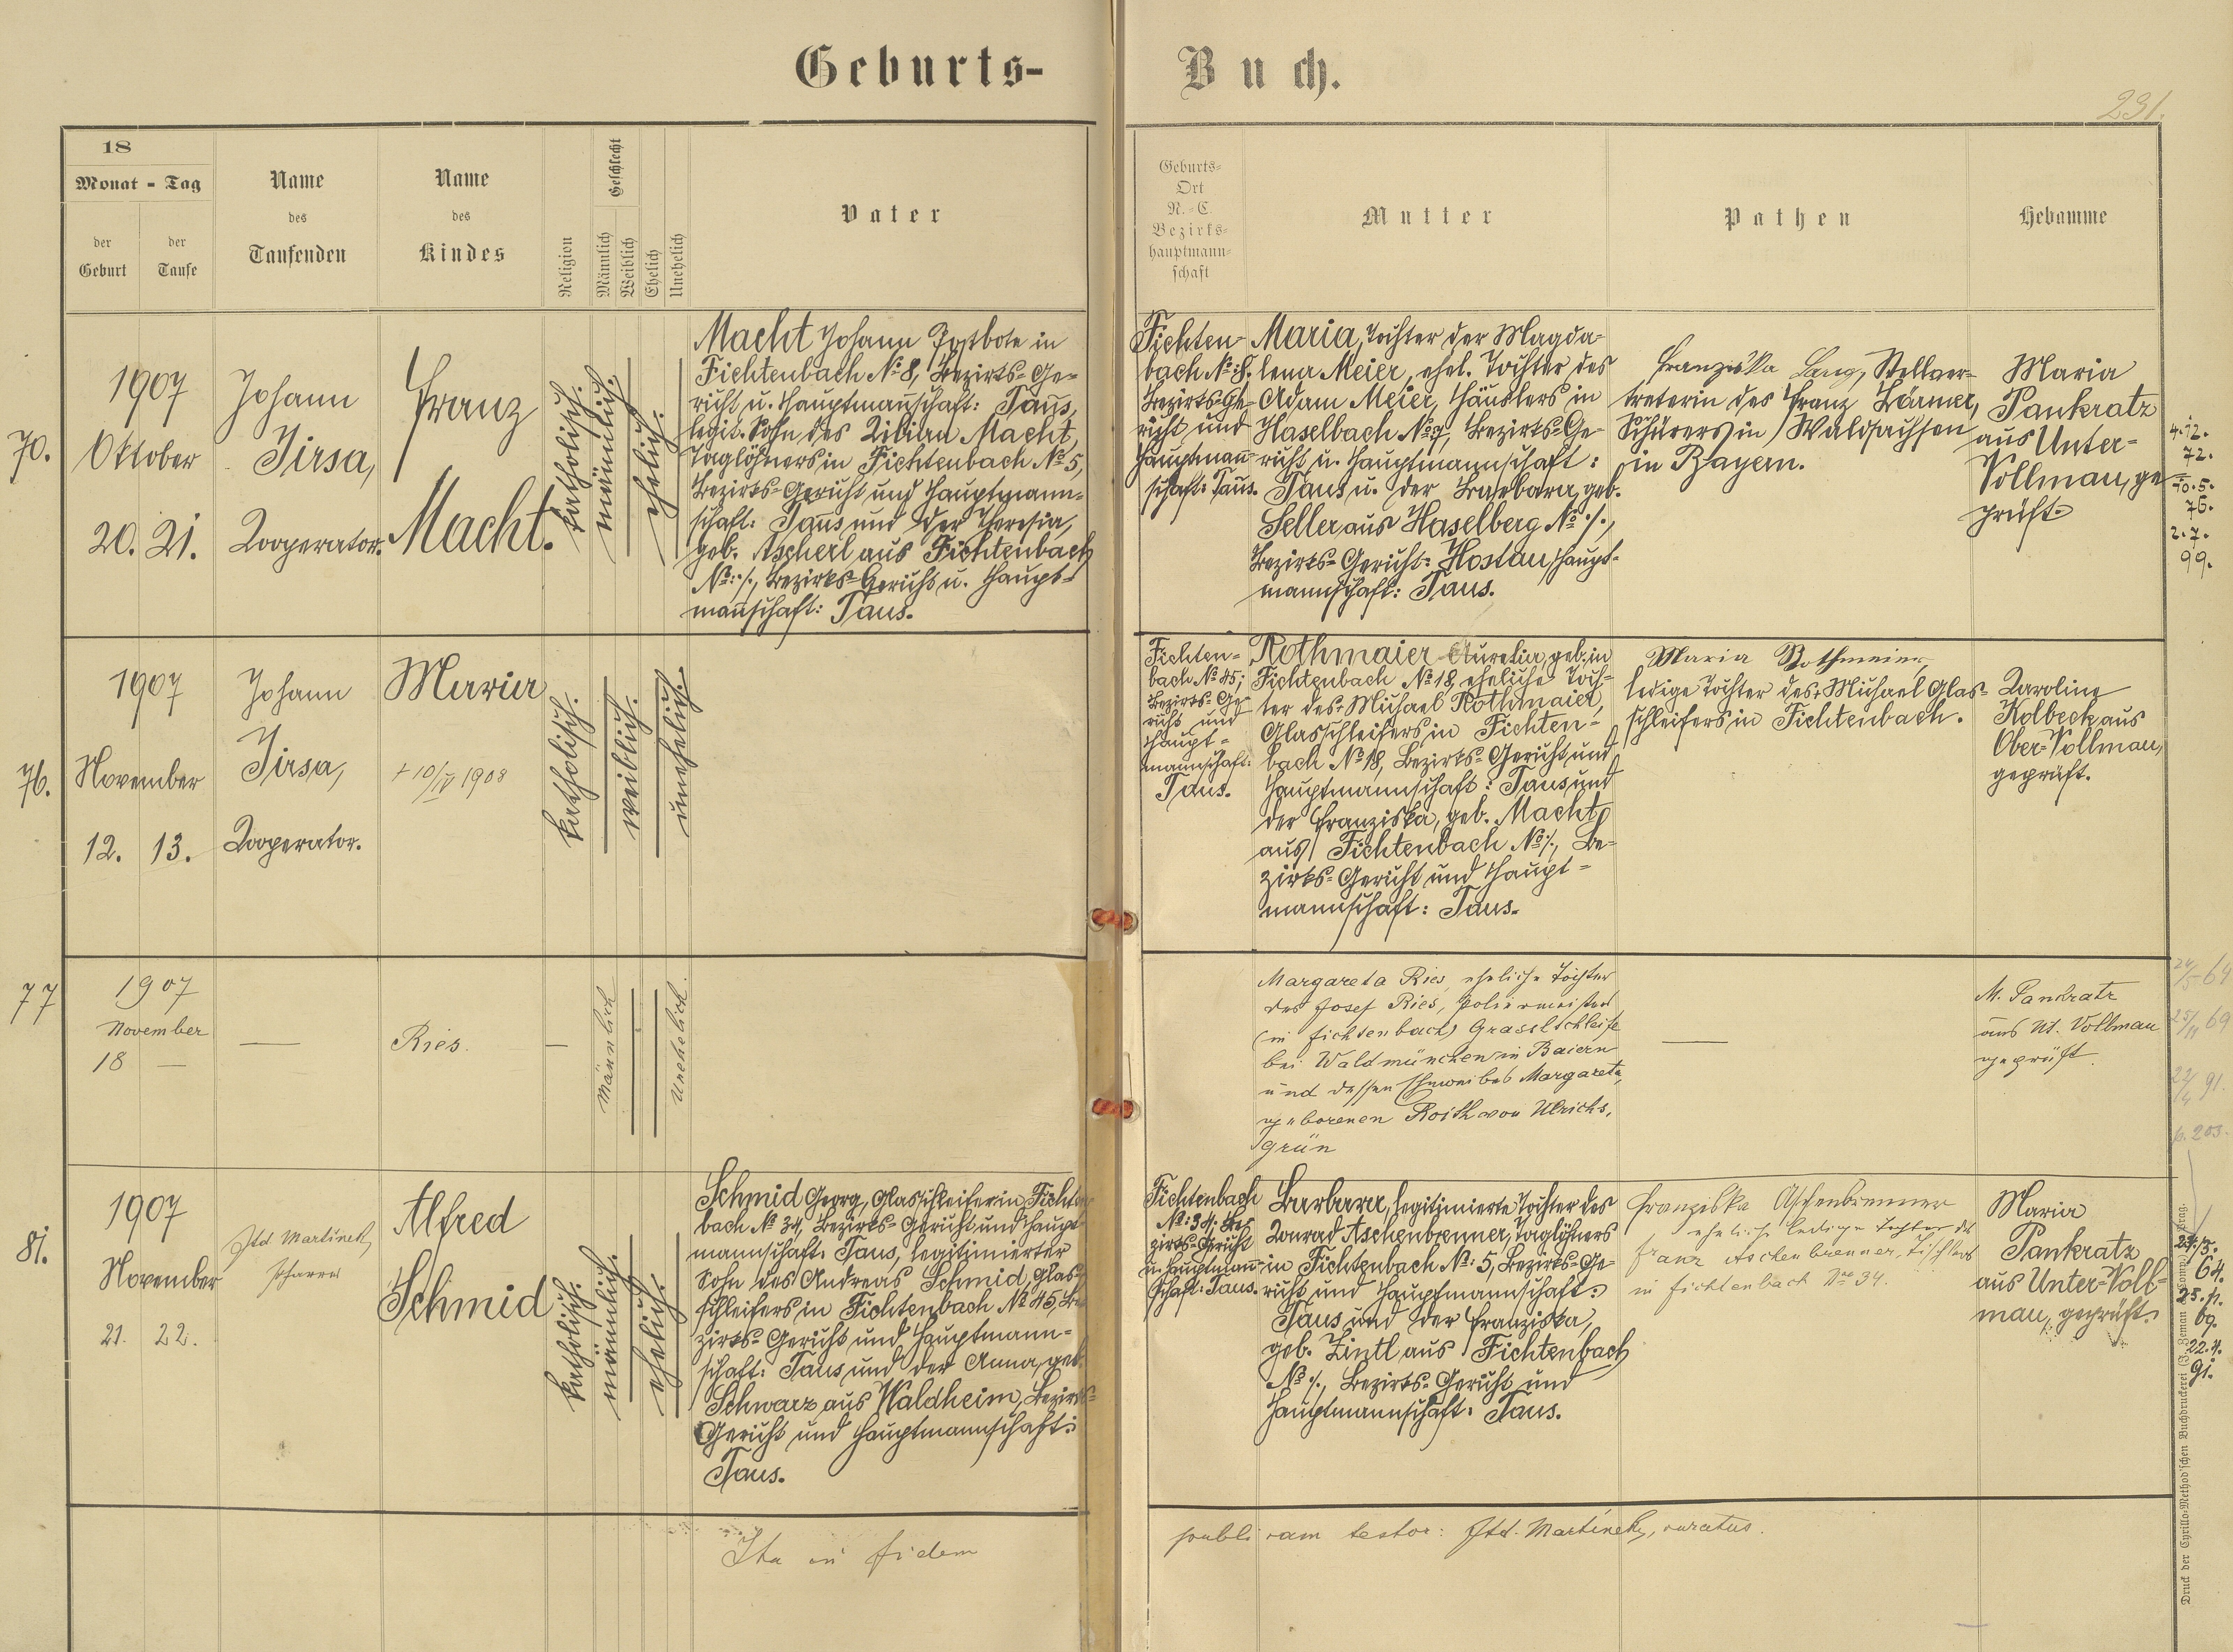 Geburts-
Buch.
231.
18
Monat - Tag
der
Geburt
der
Taufe
Name
des
Taufenden
Name
des
Kindes
Religion
Geschlecht
Männlich
Weiblich
Ehelich
Unehelich
Vater
Geburts-
Ort
N.-C.
Bezirks-
hauptmann-
schaft
Mutter
Pathen
Hebamme
70.
1907
Oktober
20. 21.
Johann
Jirsa,
Kooperator.
Franz
Macht.
katholisch.
männlich.
ehelich.
Macht Johann Postbote in
Fichtenbach No 8, Bezirks-Ge-
richt u. Hauptmannschaft: Taus,
legit. Sohn des Kilian Macht,
Taglöhners in Fichtenbach No 5,
Bezirks-Gericht und Hauptmann-
schaft: Taus und der Theresia,
geb. Ascherl aus Fichtenbach
No: ·/., Bezirks-Gericht u. Haupt-
mannschaft: Taus.
Fichten-
bach No: 8.
Bezirks-Ge-
richt und
Hauptmann-
schaft: Taus.
Maria, Tochter der Magda-
lena Meier, ehel. Tochter des
Adam Meier, Häuslers in
Haselbach No 7, Bezirks-Ge-
richt u. Hauptmannschaft:
Taus u. der Barbara, geb.
Seller aus Haselberg No ·/.,
Bezirks-Gericht: Hostau, Haupt-
mannschaft: Taus.
Franziska Lang, Stellver-
treterin des Franz Körner,
Schürers in Waldsachsen
in Bayern.
Maria
Pankratz
aus Unter-
Vollmau, ge-
prüft
4.12.
72.
10.5.
76.
2.7.
99.
76.
1907
November
12. 13.
Johann
Jirsa,
Kooperator.
Maria
+ 10/IV 1908
katholisch.
weiblich.
unehelich.
Fichten-
bach No 45;
Bezirks-Ge-
richt und
Haupt-
mannschaft:
Taus.
Rothmaier Aurelia, geb. in
Fichtenbach No 18, eheliche Toch-
ter des Michael Rothmaier,
Glasschleifers in Fichten-
bach No 18, Bezirks-Gericht und
Hauptmannschaft: Taus und
der Franziska, geb. Macht
aus Fichtenbach No ·/., Be-
zirks-Gericht und Haupt-
mannschaft: Taus.
Maria Rothmeier,
ledige Tochter des + Michael Glas-
schleifers in Fichtenbach.
Karoline
Kolbeck aus
Ober-Vollmau,
geprüft.
77
1907
November
18 —
—
Ries.
—
Männlich
Unehelich.
Margareta Ries, eheliche Tochter
des Josef Ries, Poliermeister
(in Fichtenbach) Grasslschleife
bei Waldmünchen in Baiern
und dessen Eheweibes Margareta,
geborenen Roith von Ulrichs,
grün
—
M. Pankratz
aus Ut. Vollmau
geprüft.
24/5 64
25/11 69
22/4 91.
p. 203.
81.
1907
November
21. 22.
Ftd Martinek,
Pfarrer
Alfred
Schmid
katholisch.
männlich.
ehelich.
Schmid Georg, Glasschleifer in Fichten
bach No 34, Bezirks-Gericht und Haupt-
mannschaft: Taus, legitimierter
Sohn des Andreas Schmid, Glas-
schleifers in Fichtenbach No 45, Be-
zirks-Gericht und Hauptmann-
schaft: Taus und der Anna, geb.
Schwarz aus Waldheim, Bezirks-
Gericht und Hauptmannschaft:
Taus.
Fichtenbach
No: 34; Be-
zirks-Gericht
u. Hauptmann-
schaft: Taus.
Barbara, legitimierte Tochter des
Konrad Aschenbrenner, Taglöhners
in Fichtenbach No: 5, Bezirks-Ge-
richt und Hauptmannschaft:
Taus und der Franziska,
geb. Zintl aus Fichtenbach
No ·/., Bezirks-Gericht und
Hauptmannschaft: Taus.
Franziska Aschenbrenner
eheliche ledige Tochter des
Franz Aschenbrenner, Tischlers
in Fichtenbach No 34.
Maria
Pankratz
aus Unter-Voll-
mau, geprüft.
24./5.
64.
25.11.
69.
22.4.
91.
Ita in fidem
publicam testor: Ftd. Martinek, curatus.
Druck der Cyrillo-Method'schen Buchdruckerei (J. Zeman & Comp.) Prag.